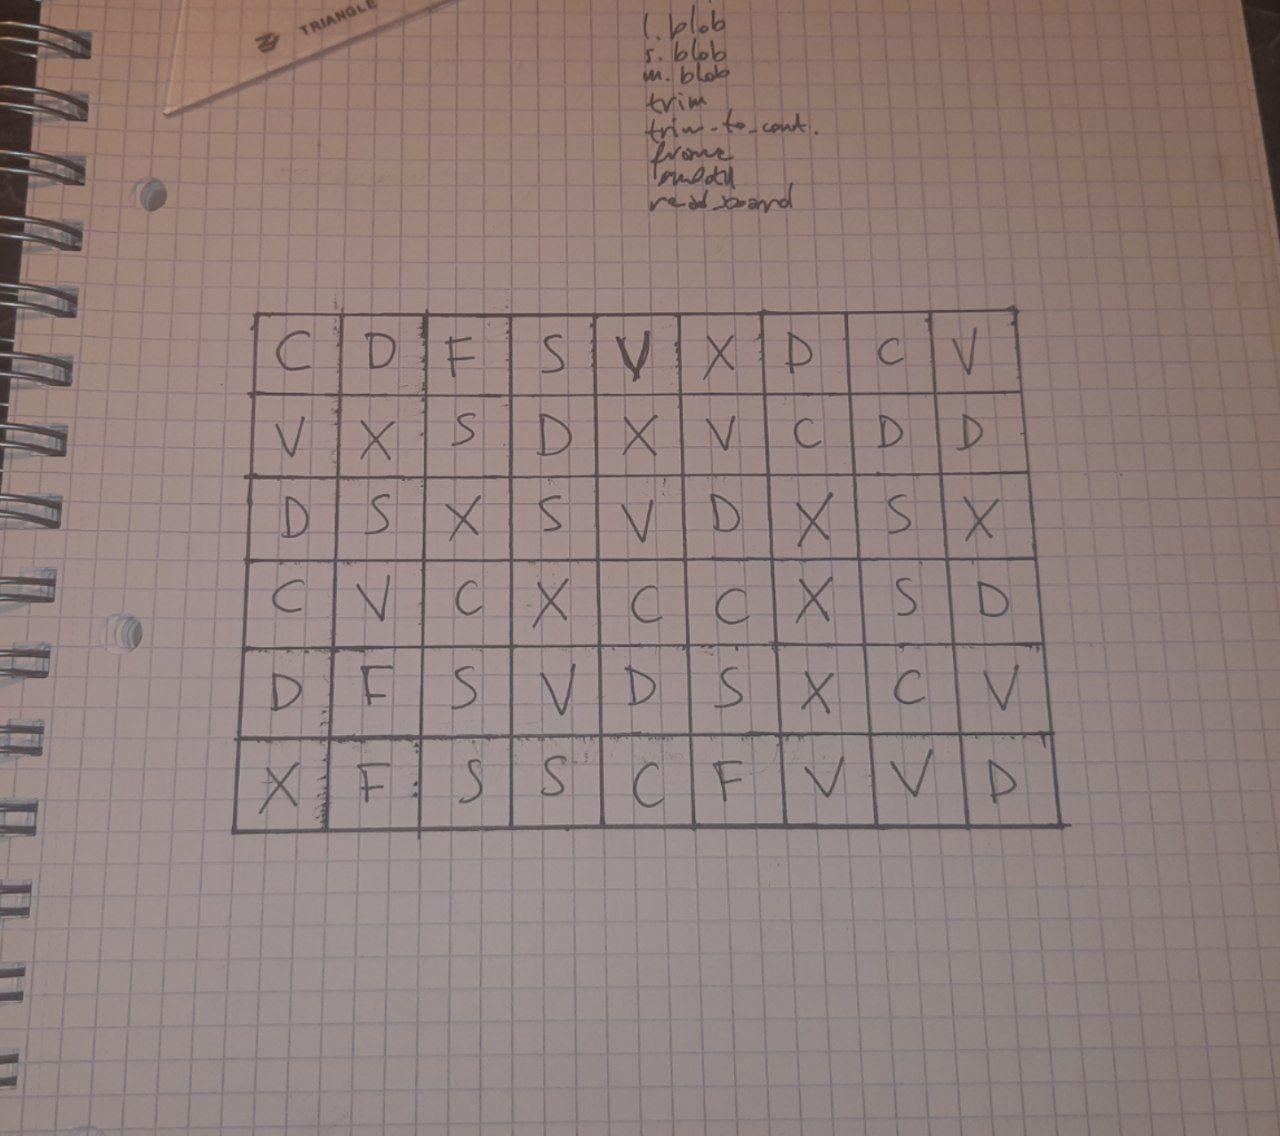 TRIANGLE
l.blob
s.blob
m.blob
trim
trim-to-cont.
frome
read_board
C D F S V X D C V
V X S D X V C D D
D S X S V D X S X
C V C X C C X S D
D F S V D S X C V
X F S S C F V V D